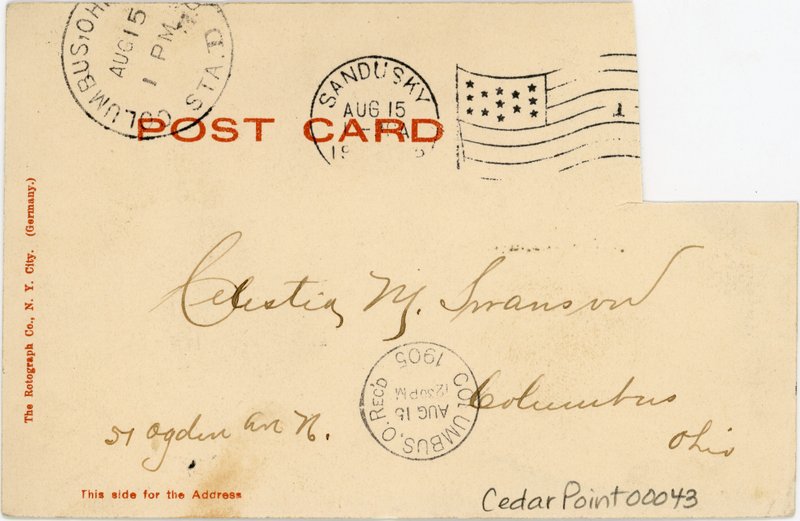 COLUMBUS, OH
AUG 15
1 PM
STA. D
SANDUSKY
AUG 15
19
1
POST CARD
The Rotograph Co., N. Y. City. (Germany.)
Celestia M. Swanson
COLUMBUS, O. REC'D
AUG 15
1230 PM
1905
Columbus
51 Ogden Ave N.
Ohio
This side for the Address
CedarPoint00043